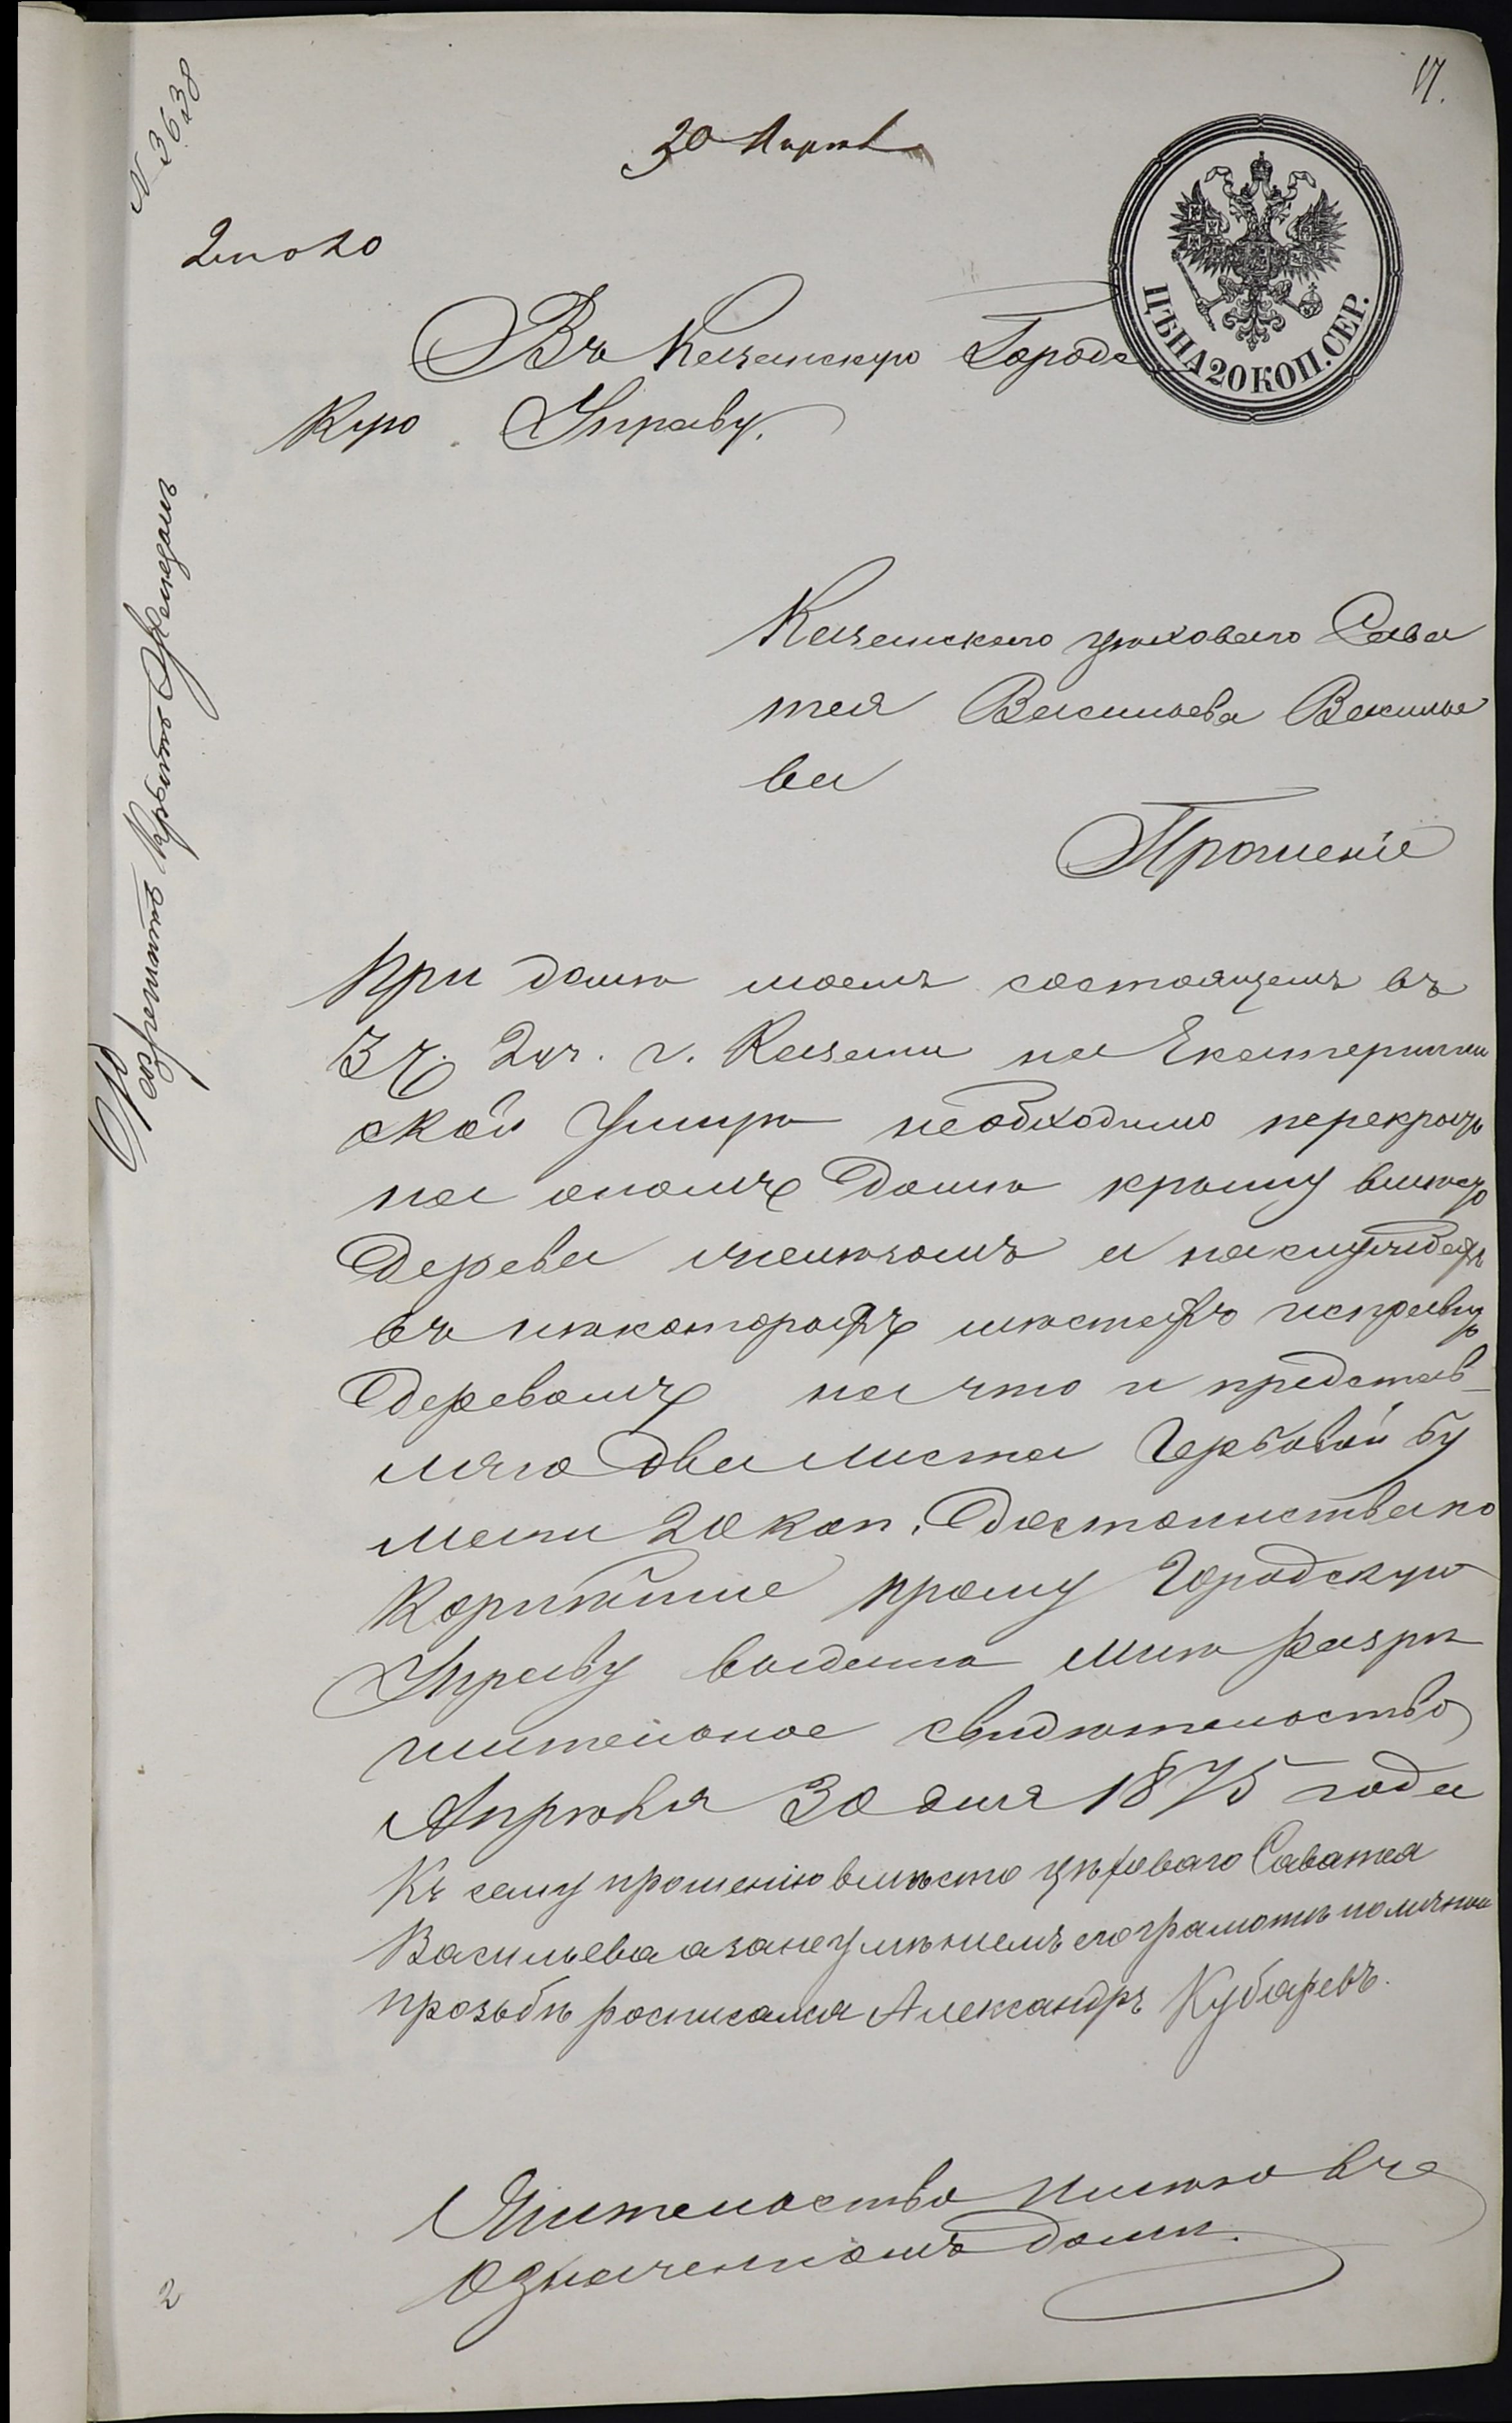 17.
№ 3638
30 Апрѣля
2 по 20
ЦѢНА 20 КОП. СЕР.
Въ Казанскую Городс
кую Управу.
Казанскаго цѣховаго Сава
тея Васильева Василье
ва
Прошеніе
При домѣ моемъ состоящемъ въ
3 ч. 2 кв. г. Казани на Екатеринин
ской улицѣ необходимо перекрыть
на ономъ домѣ крышу вмѣсто
дерева желѣзомъ и на службахъ
въ нѣкоторыхъ мѣстахъ исправить
деревомъ на что и представ-
ляю два листа гербовой бу
маги 20 коп. достоинства по
корнѣйше прошу Городскую
Управу выдать мнѣ разрѣ
шительное свидѣтельство
Апрѣля 30 дня 1875 года
Къ сему прошенію вмѣсто цѣховаго Саватея
Васильева а за неумѣніемъ его грамотѣ по личной
прозьбѣ росписался Александръ Кубаревъ.
Жительство имѣю въ
означенномъ домѣ.
2